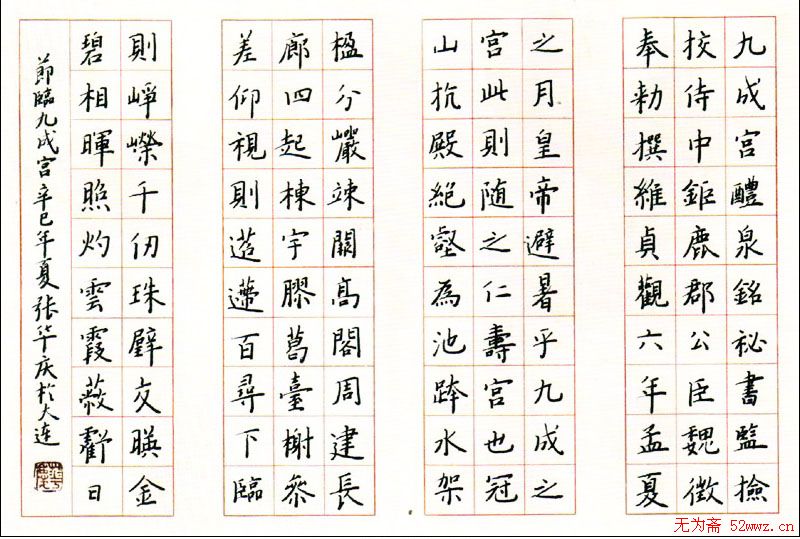 九成宫醴泉銘祕書監撿
挍侍中鉅鹿郡公臣魏徵
奉勑撰維貞觀六年孟夏
之月皇帝避暑乎九成之
宫此則随之仁壽宫也冠
山抗殿絕壑為池跨水架
楹分巖竦闕高閣周建長
廊四起棟宇膠葛臺榭參
差仰視則迢遰百尋下臨
則崢嶸千仞珠璧交暎金
碧相暉照灼雲霞蔽虧日
節臨九成宫辛巳年夏张华庆於大连
无为斋 52wwz.cn